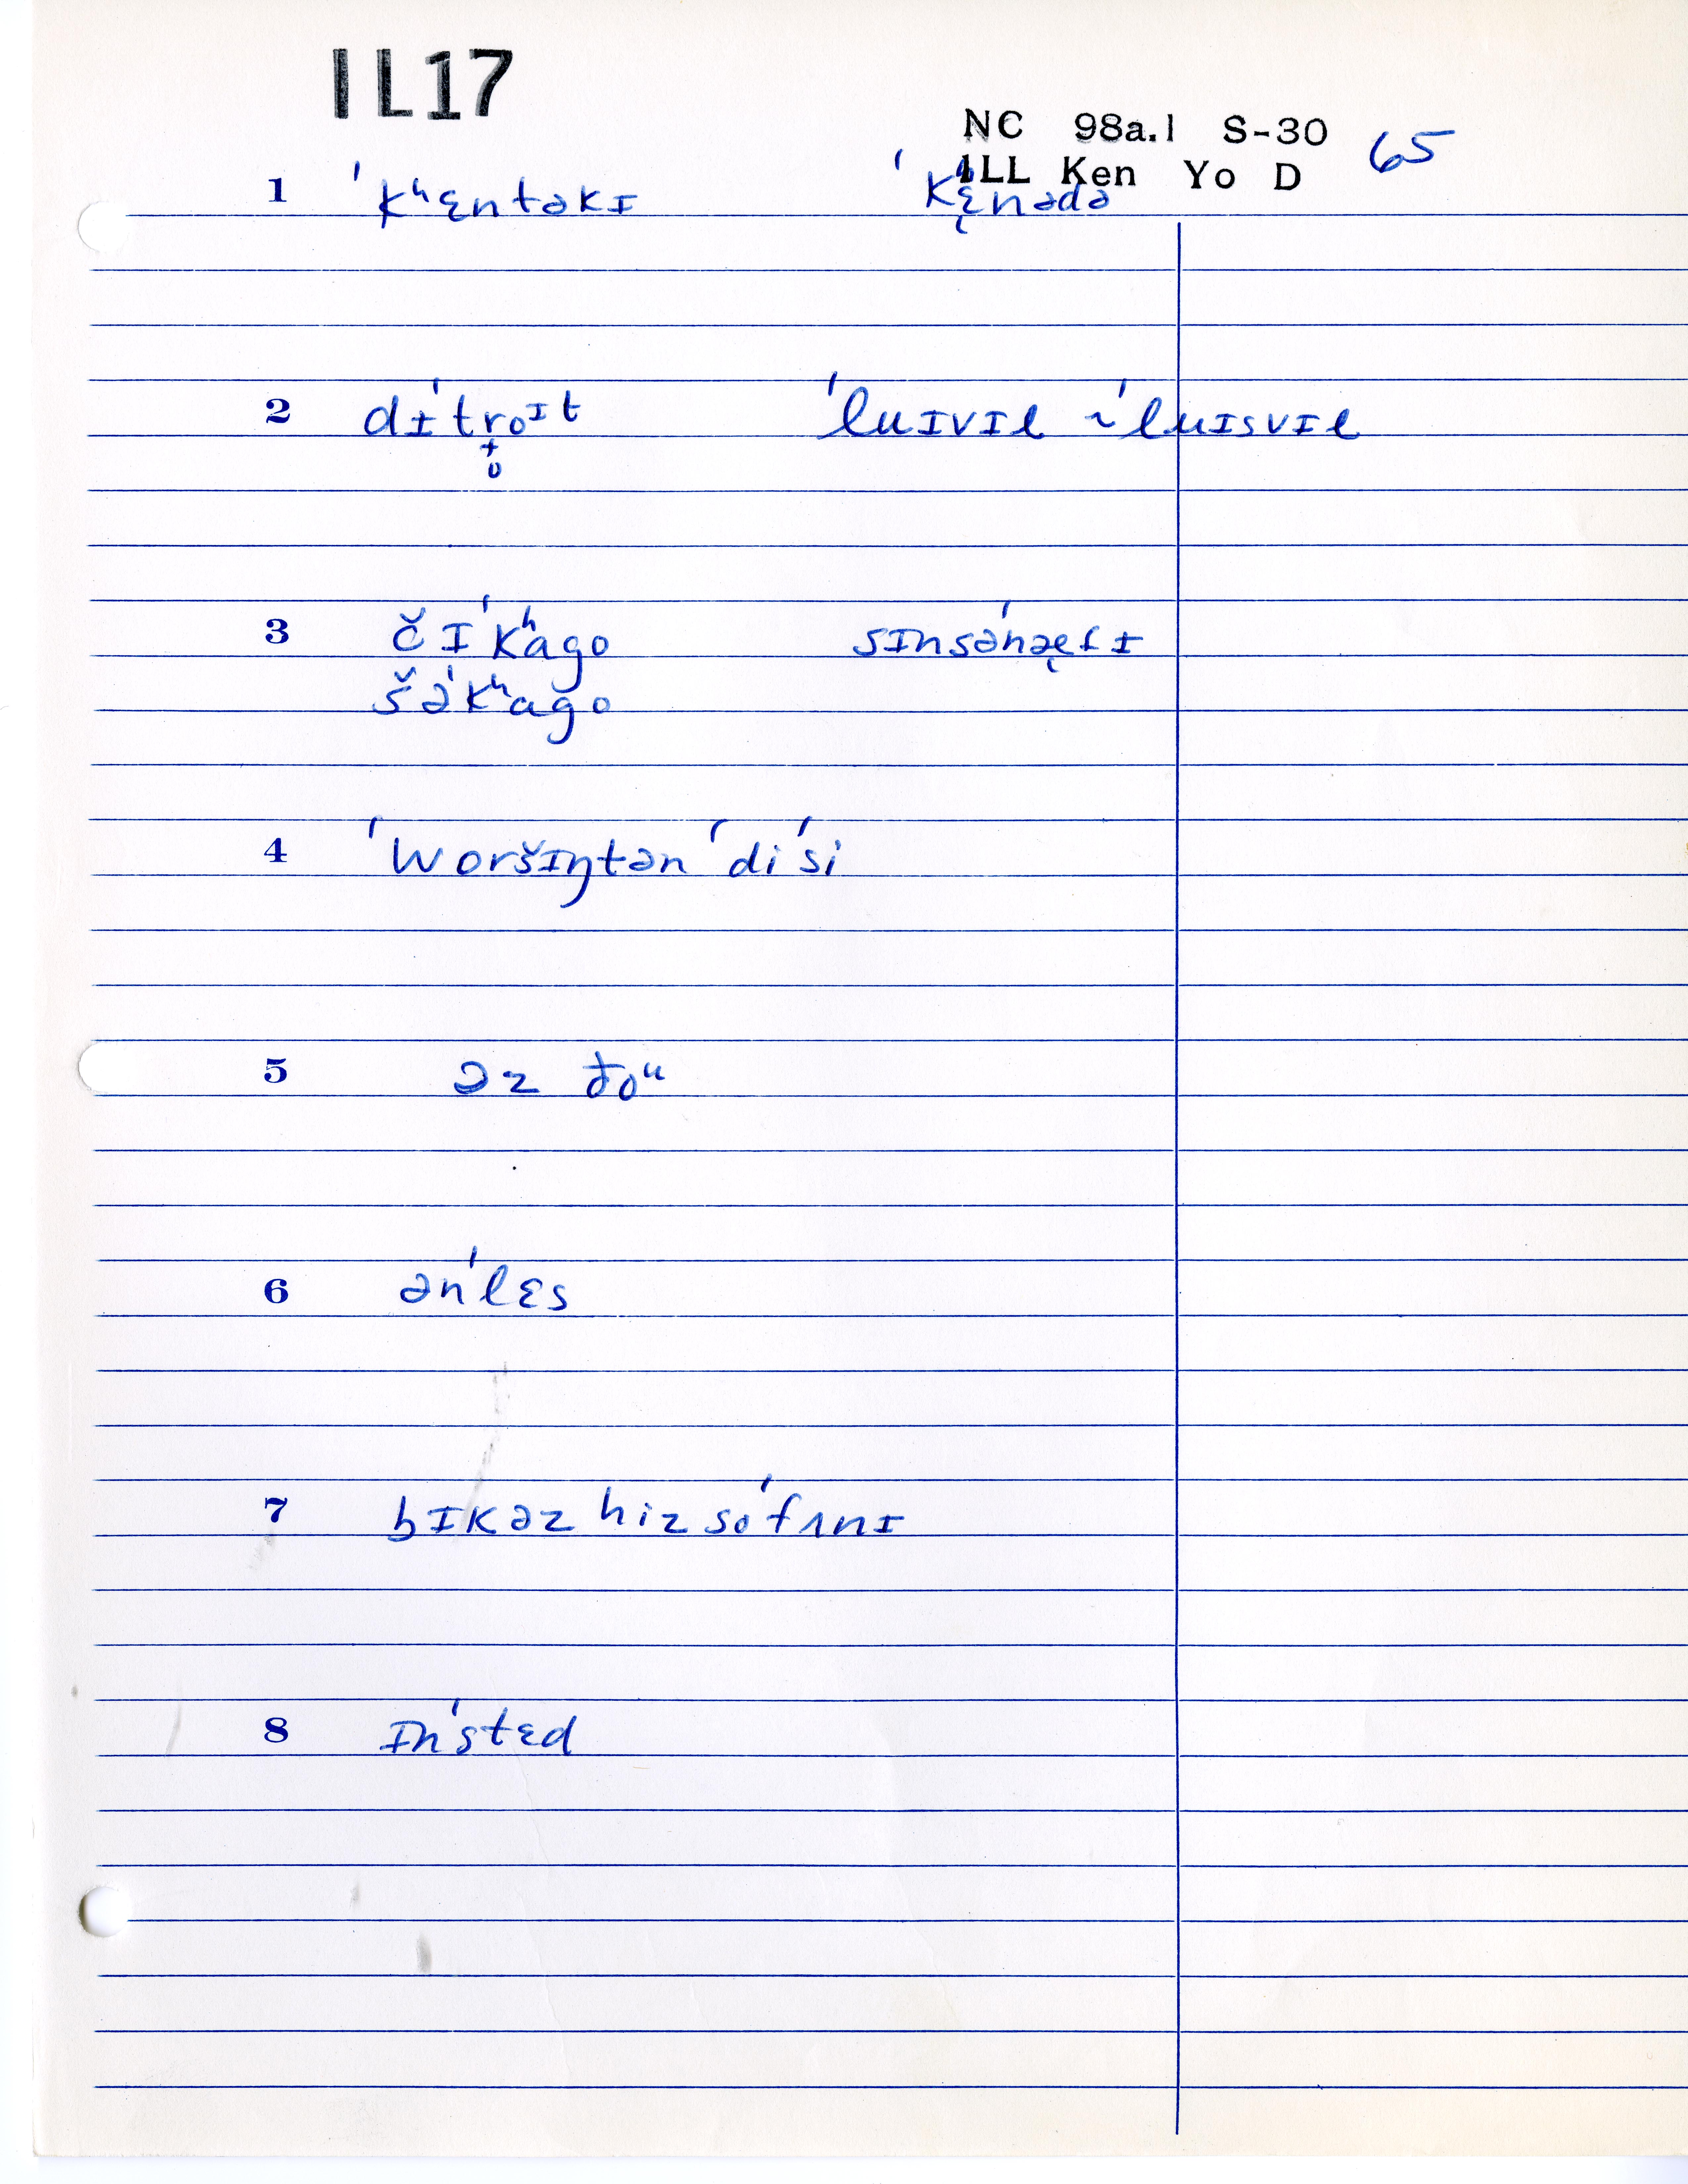 IL17
NC 98a.1 S-30 65
ILL Ken Yo D
1 ˈkʰɛntəkɪ ˈkʰɛ̨nədə
2 dɪˈtroᶦt ˈluɪvɪl ~ ˈluɪsvɪl
3 čɪˈkʰago sɪnsəˈnæ̨tɪ
šəˈkʰago
4 ˈworšɪŋtən ˈdiˈsi
5 əz ðoᵘ
6 ənˈlɛs
7 bɪkəz hiz soˈfʌnɪ
8 ɪnˈstɛd